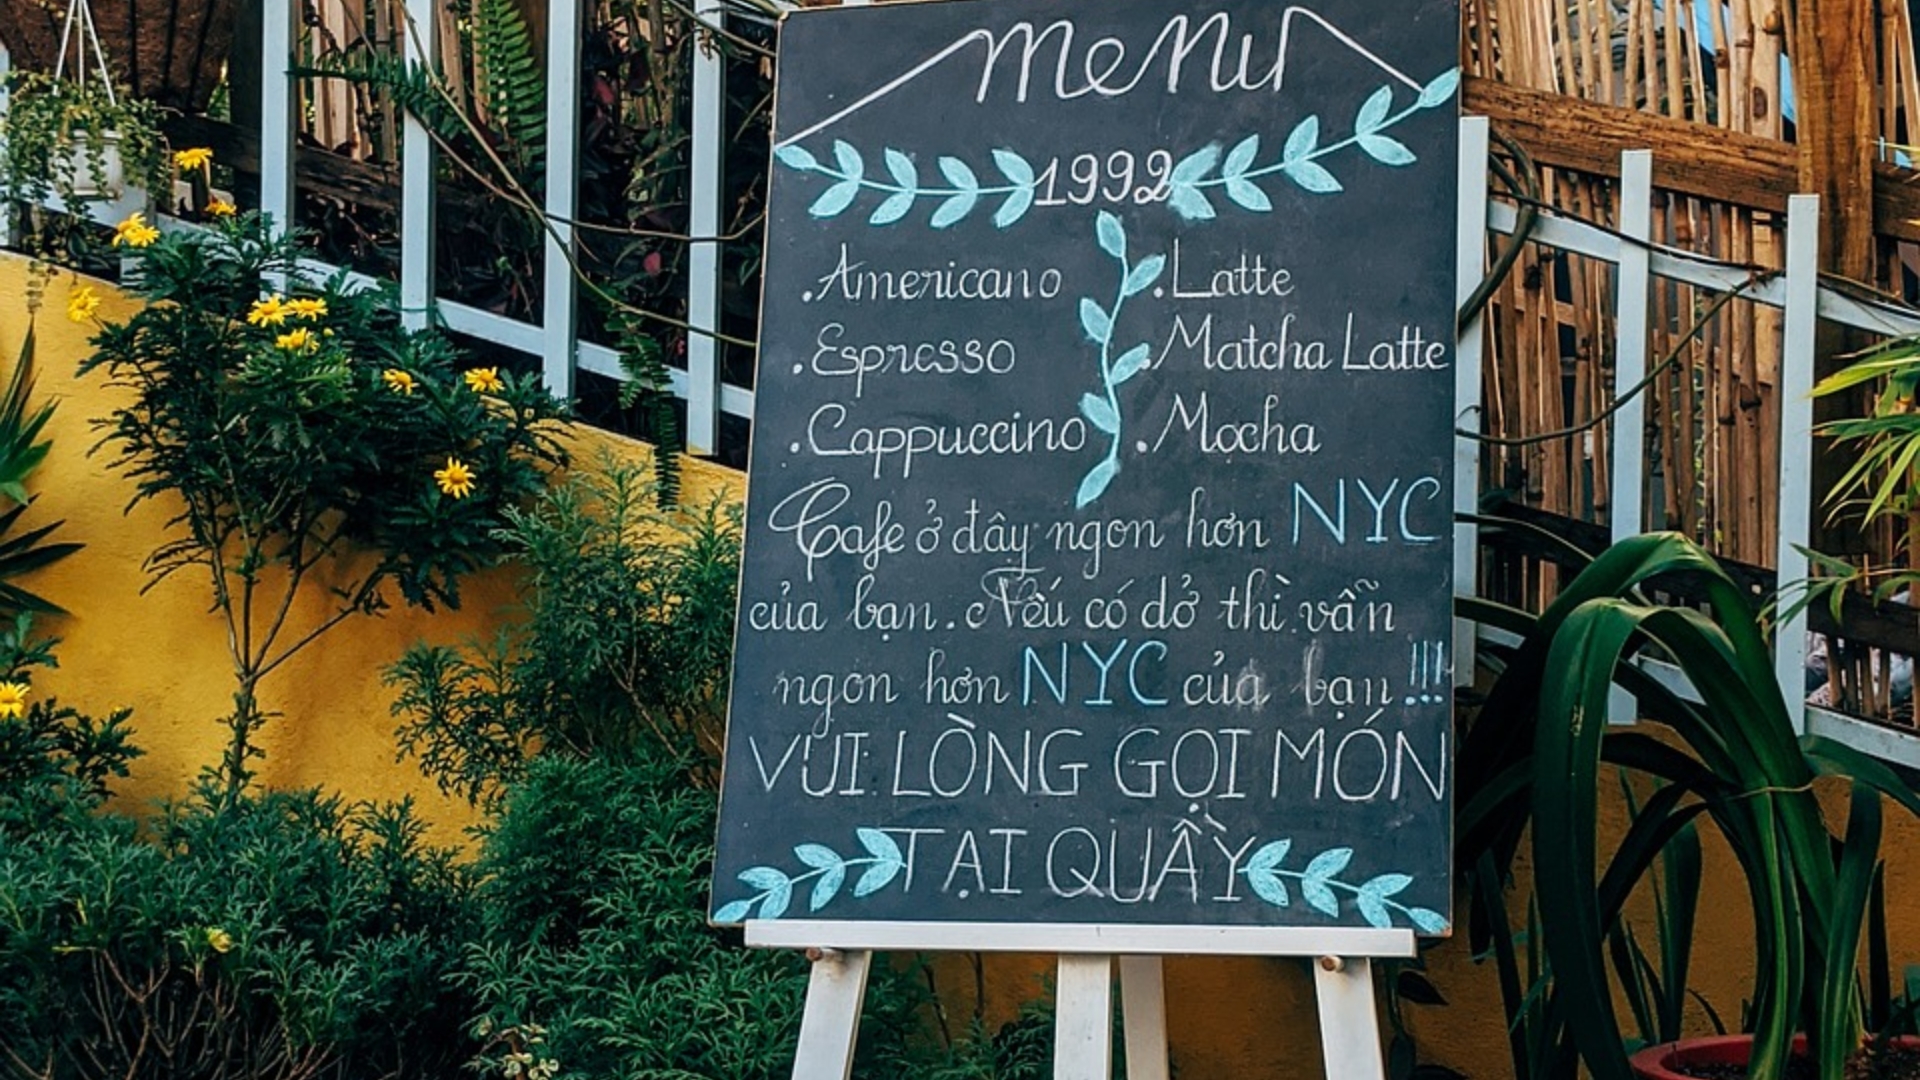 Menu
1992
.Americano
.Espresso
.Cappuccino
.Latte
.Matcha Latte
.Mocha
Cafe ở đây ngon hơn NYC
của bạn. Nếu có dở thì vẫn
ngon hơn NYC của bạn !!!
VUI LÒNG GỌI MÓN
TẠI QUẦY